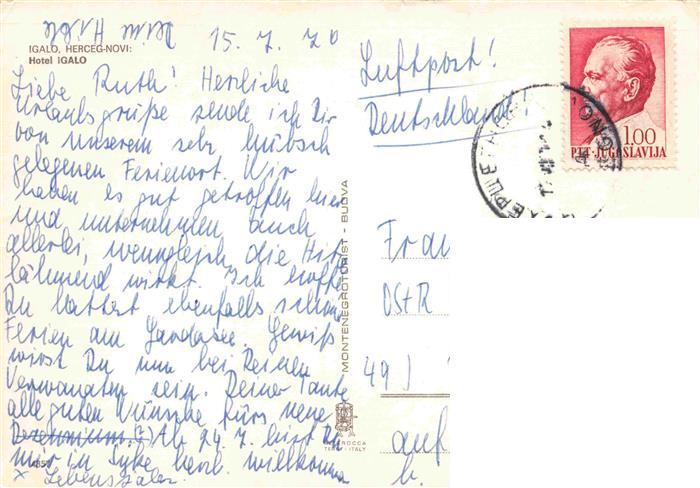 Deine Hilde
15. 7. 70
IGALO, HERCEG-NOVI:
Hotel IGALO
Liebe Ruth! Herzliche
Urlaubsgrüße sende ich Dir
von unserem sehr hübsch
gelegenen Ferienort. Wir
haben es gut getroffen hier
und unternehmen auch
allerlei, wenngleich die Hitze
lähmend wirkt. Ich hoffe
Du hattest ebenfalls schöne
Ferien am Gardasee. Gewiß
wirst Du nun bei Deinen
Verwandten sein. Deiner Tante
alle guten Wünsche fürs neue
Dezennium.(?) Ab 24.7. bist Du
mir in Syke herzl. willkommen
x Lebensjahr.
MONTENEGROTURIST - BUDVA
Luftpost!
Deutschland
1.00
PTT-JUGOSLAVIJA
Frau
OStR
49)
auf
b.